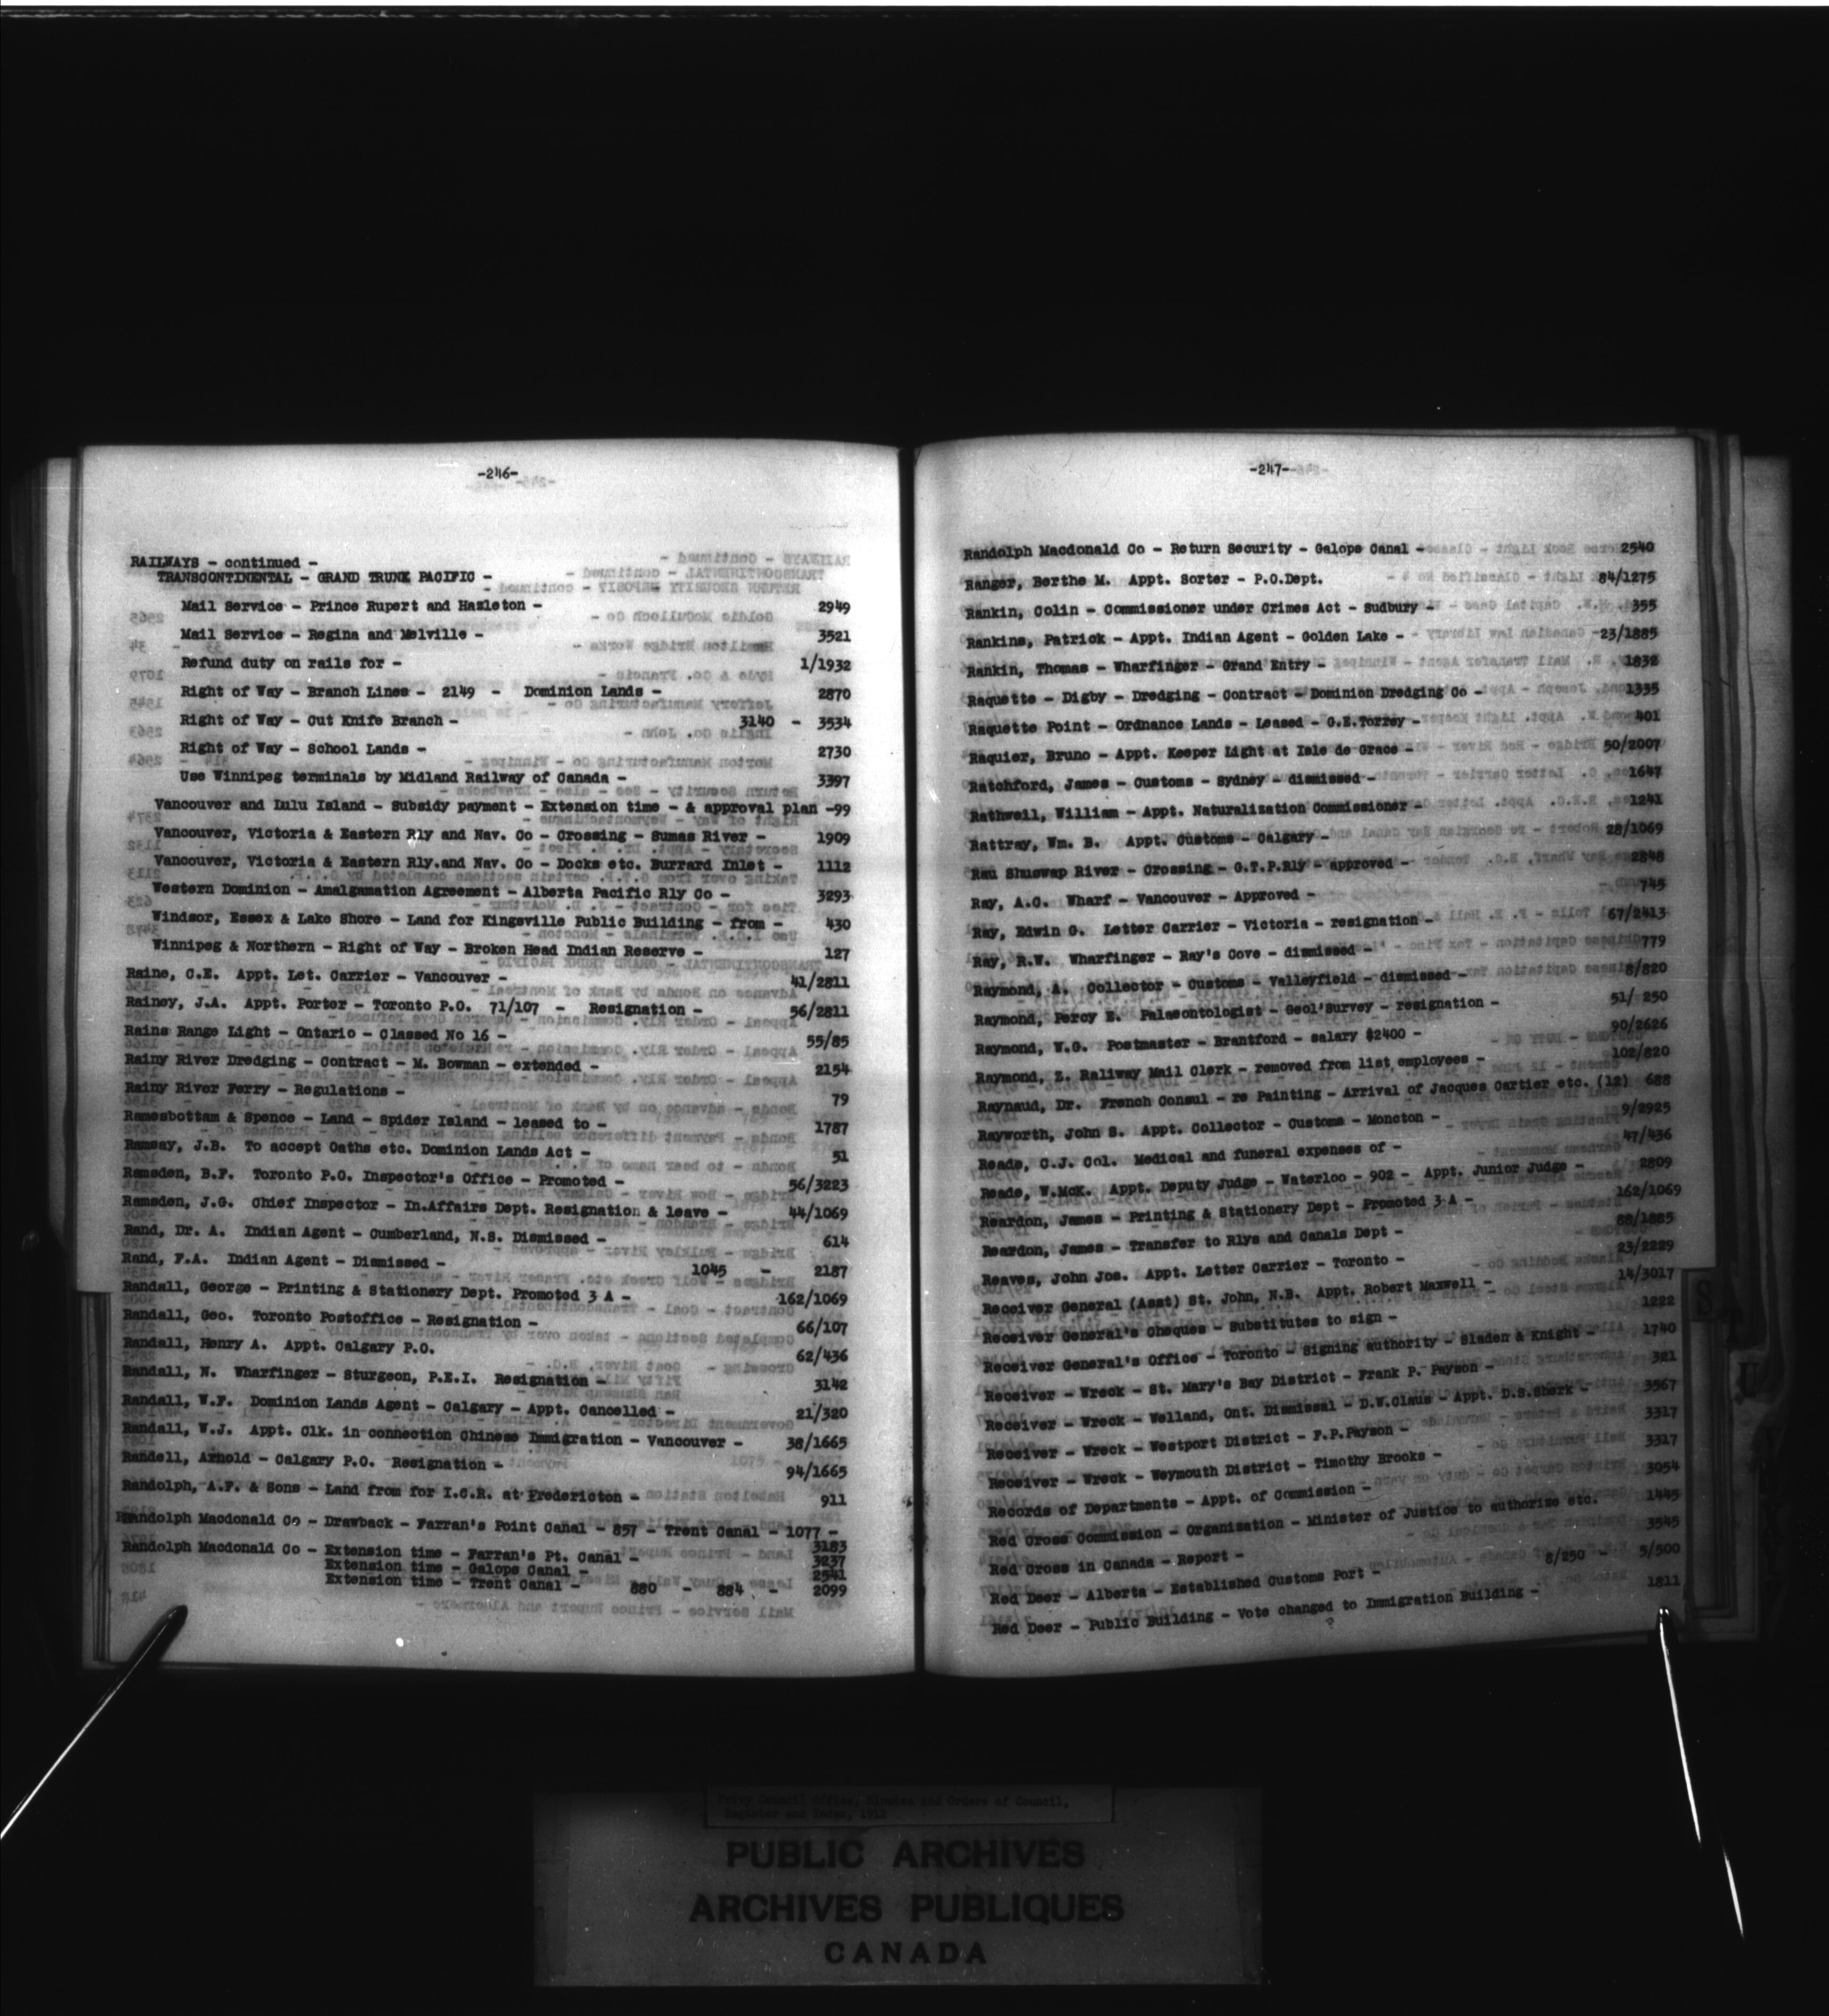 -246-
RAILWAYS - continued -
TRANSCONTINENTAL - GRAND TRUNK PACIFIC -
Mail Service - Prince Rupert and Hazleton - 2949
Mail Service - Regina and Melville - 3521
Refund duty on rails for - 1/1932
Right of Way - Branch Lines - 2149 - Dominion Lands - 2870
Right of Way - Cut Knife Branch - 3140 - 3534
Right of Way - School Lands - 2730
Use Winnipeg terminals by Midland Railway of Canada - 3397
Vancouver and Lulu Island - Subsidy payment - Extension time - & approval plan -99
Vancouver, Victoria & Eastern Rly and Nav. Co - Crossing - Sumas River - 1909
Vancouver, Victoria & Eastern Rly.and Nav. Co - Docks etc. Burrard Inlet - 1112
Western Dominion - Amalgamation Agreement - Alberta Pacific Rly Co - 3293
Windsor, Essex & Lake Shore - Land for Kingsville Public Building - from - 430
Winnipeg & Northern - Right of Way - Broken Head Indian Reserve - 127
Raine, C.E. Appt. Let. Carrier - Vancouver - 41/2811
Rainey, J.A. Appt. Porter - Toronto P.O. 71/107 - Resignation - 56/2811
Rains Range Light - Ontario - Classed No 16 - 55/85
Rainy River Dredging - Contract - M. Bowman - extended - 2154
Rainy River Ferry - Regulations - 79
Ramesbottam & Spence - Land - Spider Island - leased to - 1787
Ramsay, J.B. To accept Oaths etc. Dominion Lands Act - 51
Ramsden, B.F. Toronto P.O. Inspector's Office - Promoted - 56/3223
Ramsden, J.G. Chief Inspector - In.Affairs Dept. Resignation & leave - 44/1069
Rand, Dr. A. Indian Agent - Cumberland, N.S. Dismissed - 614
Rand, F.A. Indian Agent - Dismissed - 1045 - 2187
Randall, George - Printing & Stationery Dept. Promoted 3 A - 162/1069
Randall, Geo. Toronto Postoffice - Resignation - 66/107
Randall, Henry A. Appt. Calgary P.O. 62/436
Randall, N. Wharfinger - Sturgeon, P.E.I. Resignation - 3142
Randall, W.F. Dominion Lands Agent - Calgary - Appt. Cancelled - 21/320
Randall, W.J. Appt. Clk. in connection Chinese Immigration - Vancouver - 38/1665
Randell, Arnold - Calgary P.O. Resignation - 94/1665
Randolph, A.F. & Sons - Land from for I.C.R. at Fredericton - 911
Randolph Macdonald Co - Drawback - Farran's Point Canal - 857 - Trent Canal - 1077 - 3183
Randolph Macdonald Co - Extension time - Farran's Pt. Canal - 3237
Extension time - Galops Canal - 2541
Extension time - Trent Canal - 880 - 884 - 2099
-247-
Randolph Macdonald Co - Return Security - Galops Canal - 2540
Ranger, Berthe M. Appt. Sorter - P.O.Dept. 84/1275
Rankin, Colin - Commissioner under Crimes Act - Sudbury - 355
Rankins, Patrick - Appt. Indian Agent - Golden Lake - 23/1885
Rankin, Thomas - Wharfinger - Grand Entry - 1832
Raquette - Digby - Dredging - Contract - Dominion Dredging Co - 1335
Raquette Point - Ordnance Lands - Leased - G.E.Torrey - 401
Raquier, Bruno - Appt. Keeper Light at Isle de Grace - 50/2007
Ratchford, James - Customs - Sydney - dismissed - 1647
Rathwell, William - Appt. Naturalization Commissioner - 1241
Rattray, Wm. B. Appt. Customs - Calgary - 28/1069
Rau Shuswap River - Crossing - G.T.P.Rly - approved - 2848
Ray, A.C. Wharf - Vancouver - Approved - 745
Ray, Edwin G. Letter Carrier - Victoria - resignation - 67/2413
Ray, R.W. Wharfinger - Ray's Cove - dismissed - 779
Raymond, A. Collector - Customs - Valleyfield - dismissed - 8/820
Raymond, Percy E. Palaeontologist - Geol'Survey - resignation - 51/ 250
Raymond, W.G. Postmaster - Brantford - salary $2400 - 90/2626
Raymond, Z. Raliway Mail Clerk - removed from list employees - 102/820
Raynaud, Dr. French Consul - re Painting - Arrival of Jacques Cartier etc. (12) 688
Rayworth, John S. Appt. Collector - Customs - Moncton - 9/2925
Reade, C.J. Col. Medical and funeral expenses of - 47/436
Reade, W.McK. Appt. Deputy Judge - Waterloo - 902 - Appt. Junior Judge - 2809
Reardon, James - Printing & Stationery Dept - Promoted 3 A - 162/1069
Reardon, James - Transfer to Rlys and Canals Dept - 88/1885
Reaves, John Jos. Appt. Letter Carrier - Toronto - 23/2229
Receiver General (Asst) St. John, N.B. Appt. Robert Maxwell - 14/3017
Receiver General's Cheques - Substitutes to sign - 1222
Receiver General's Office - Toronto - Signing authority - Sladen & Knight - 1740
Receiver - Wreck - St. Mary's Bay District - Frank P. Payson - 321
Receiver - Wreck - Welland, Ont. Dismissal - D.W.Claus - Appt. D.S.Sherk - 3567
Receiver - Wreck - Westport District - F.P.Payson - 3317
Receiver - Wreck - Weymouth District - Timothy Brooks - 3317
Records of Departments - Appt. of Commission - 3054
Red Cross Commission - Organization - Minister of Justice to authorize etc. 1445
Red Cross in Canada - Report - 3545
Red Deer - Alberta - Established Customs Port - 8/250 - 5/500
Red Deer - Public Building - Vote changed to Immigration Building - 1811
Privy Council Office, Minutes and Orders of Council,
Register and Index, 1912
PUBLIC ARCHIVES
ARCHIVES PUBLIQUES
CANADA